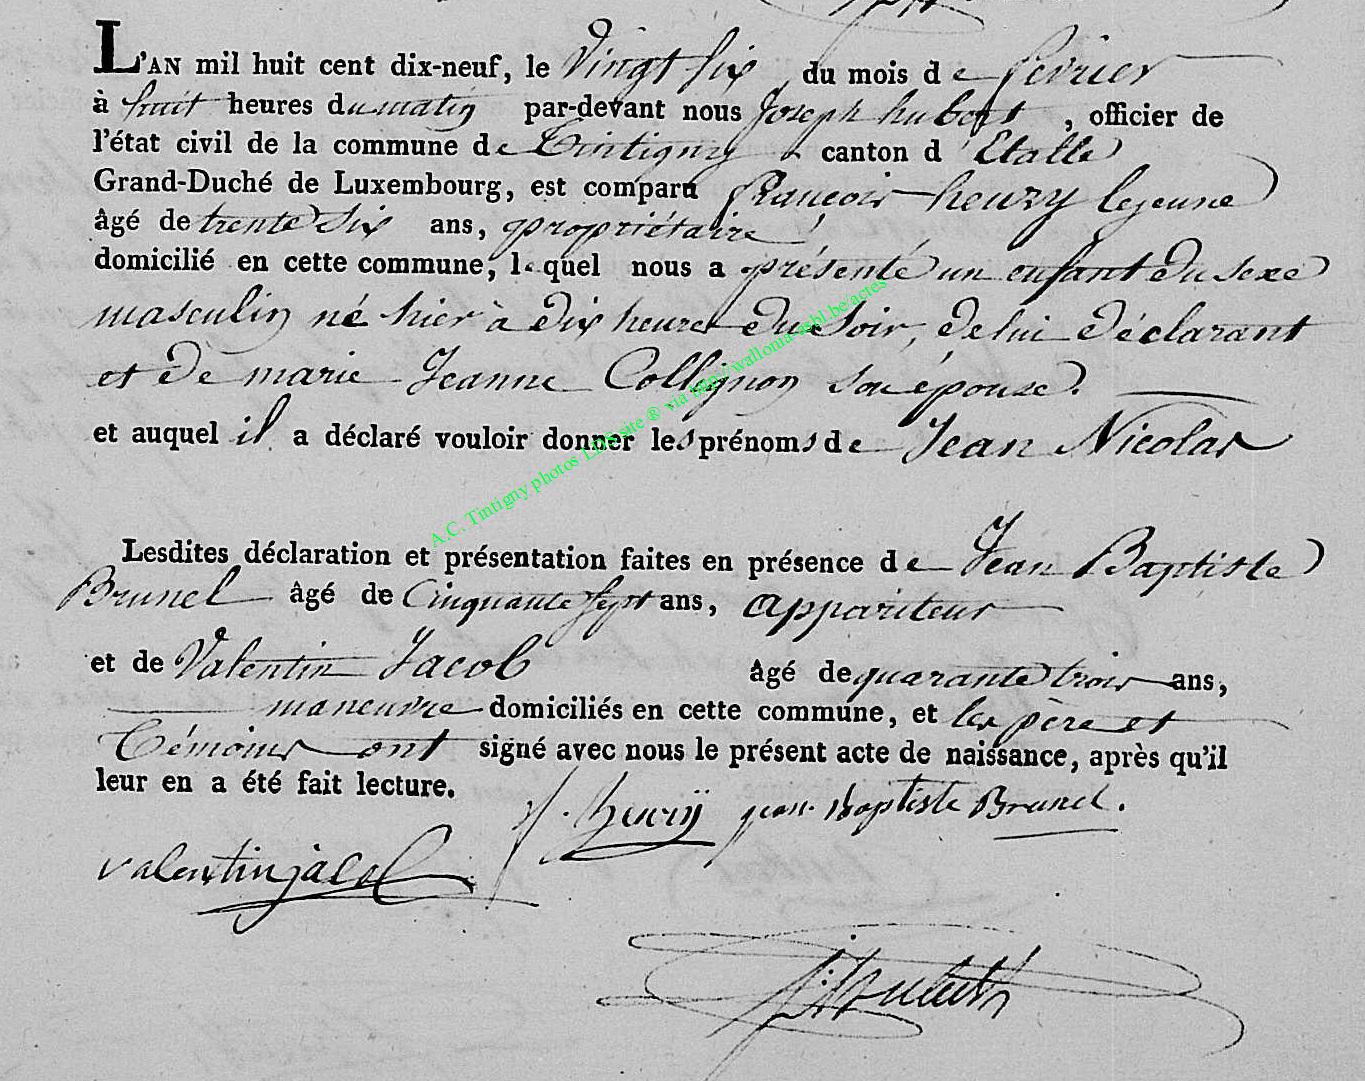 L'AN mil huit cent dix-neuf, le Vingt six du mois de fevrier
à huit heures du matin par-devant nous Joseph hubert, officier de
l'état civil de la commune de Tintigny canton d'Etalle
Grand-Duché de Luxembourg, est comparu François henry lejeune
âgé de trente six ans, propriétaire
domicilié en cette commune, lequel nous a présenté un enfant du sexe
masculin né hier à dix heures du soir, de lui déclarant
et de marie Jeanne Collignon son épouse.
et auquel il a déclaré vouloir donner les prénoms de Jean Nicolas
A.C. Tintigny photos LDS site ® via http://wallonia-asbl.be/actes
Lesdites déclaration et présentation faites en présence de Jean Baptiste
Brunel âgé de Cinquante sept ans, appariteur
et de Valentin Jacob âgé de quarante trois ans,
maneuvre domiciliés en cette commune, et les père et
témoins ont signé avec nous le présent acte de naissance, après qu'il
leur en a été fait lecture.
f. henrÿ jean Baptiste Brunel.
valentin jacob